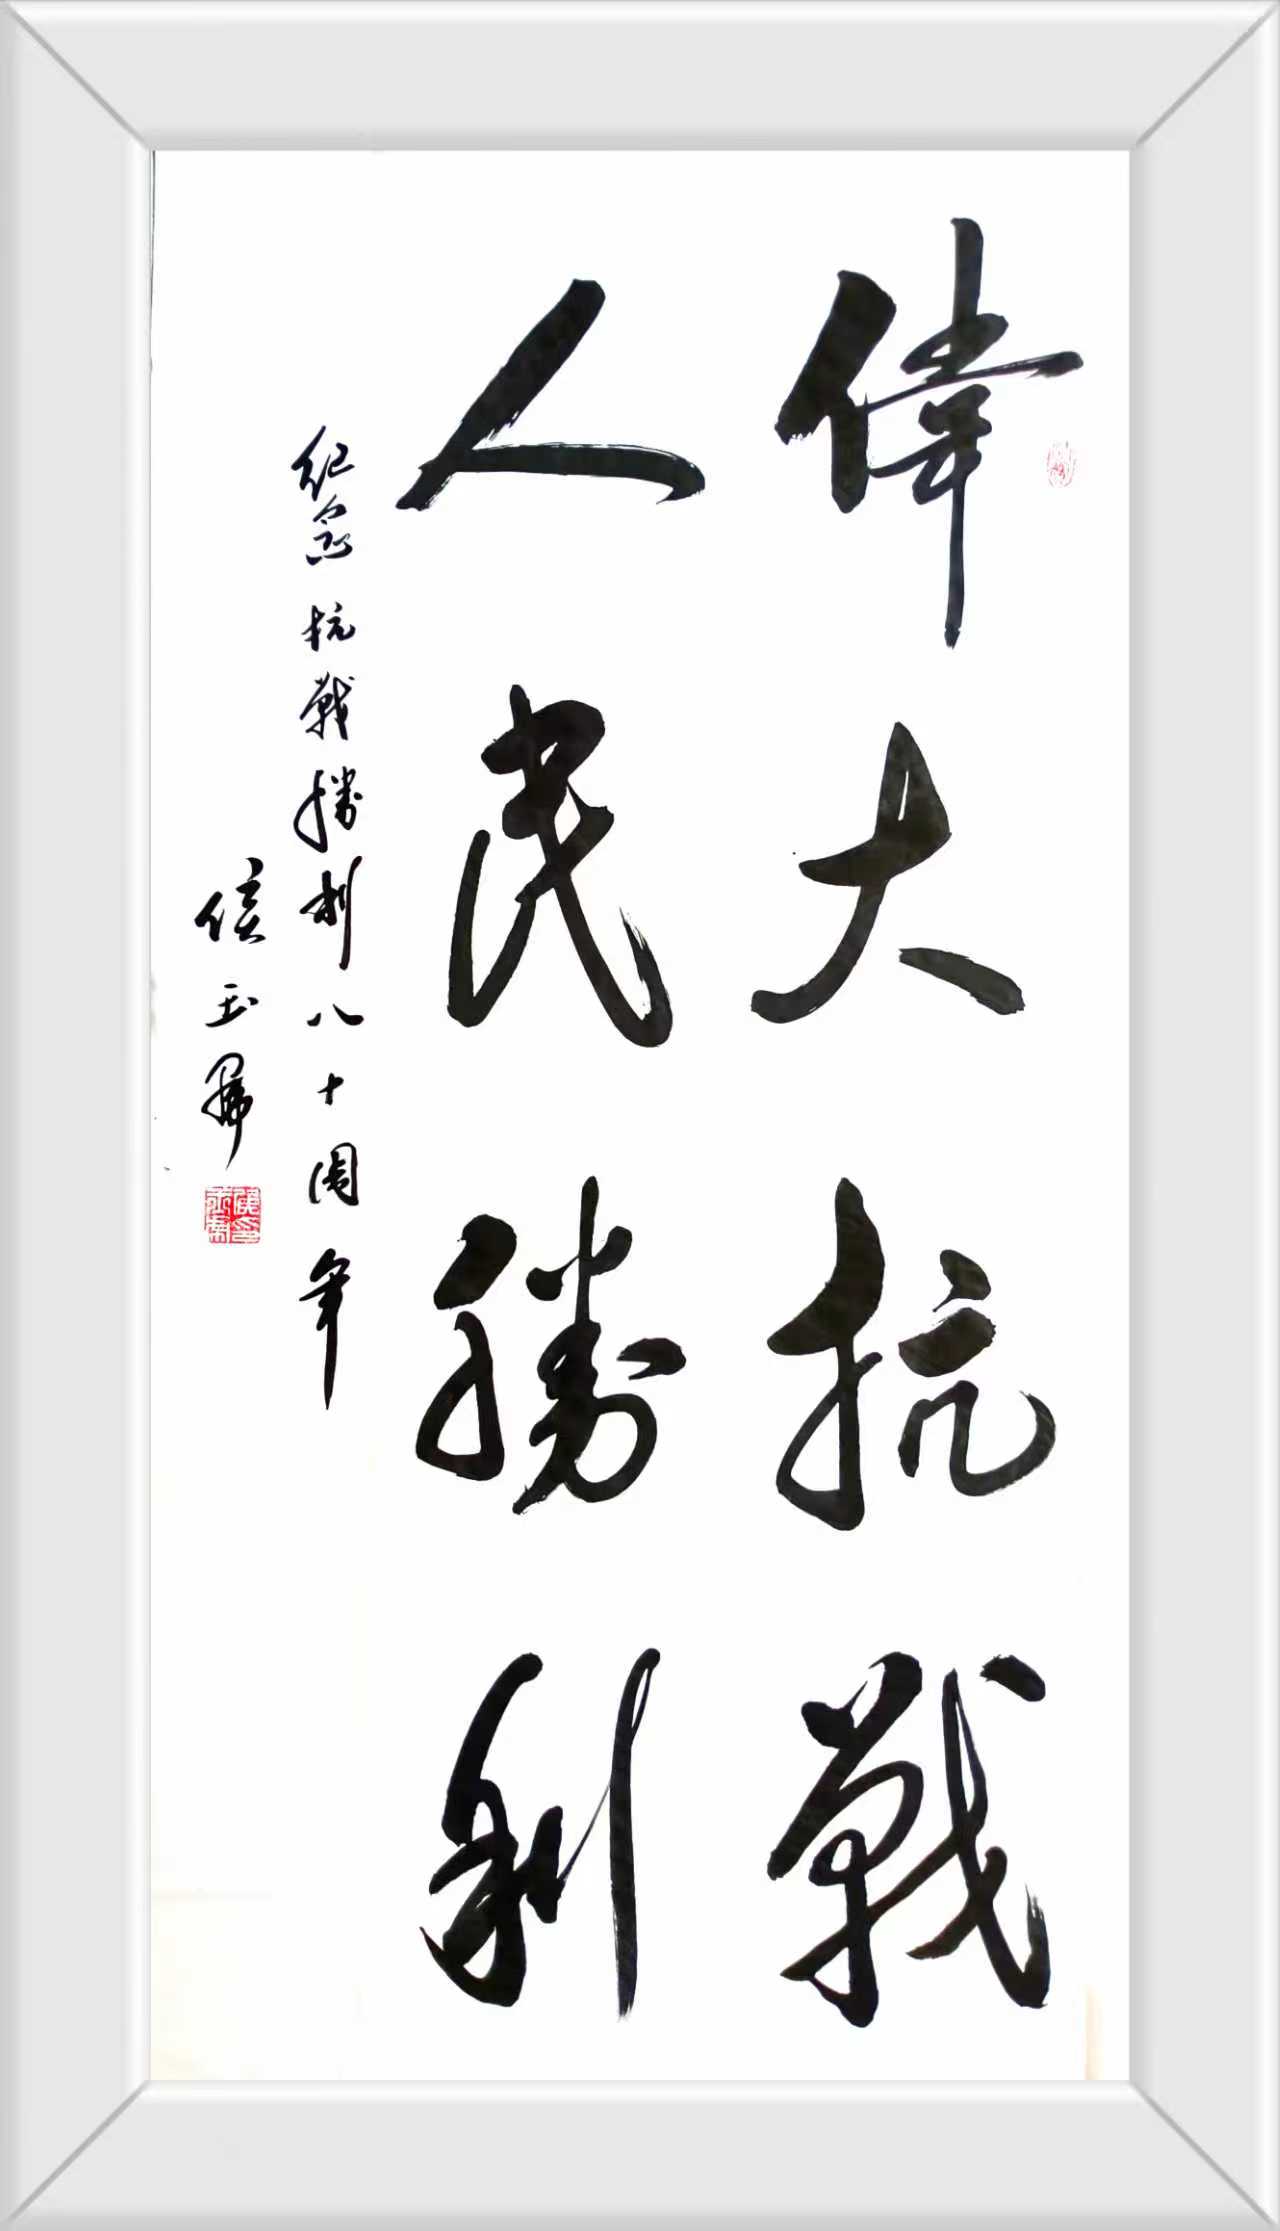 偉大抗戰
人民勝利
紀念抗戰勝利八十周年
侯玉